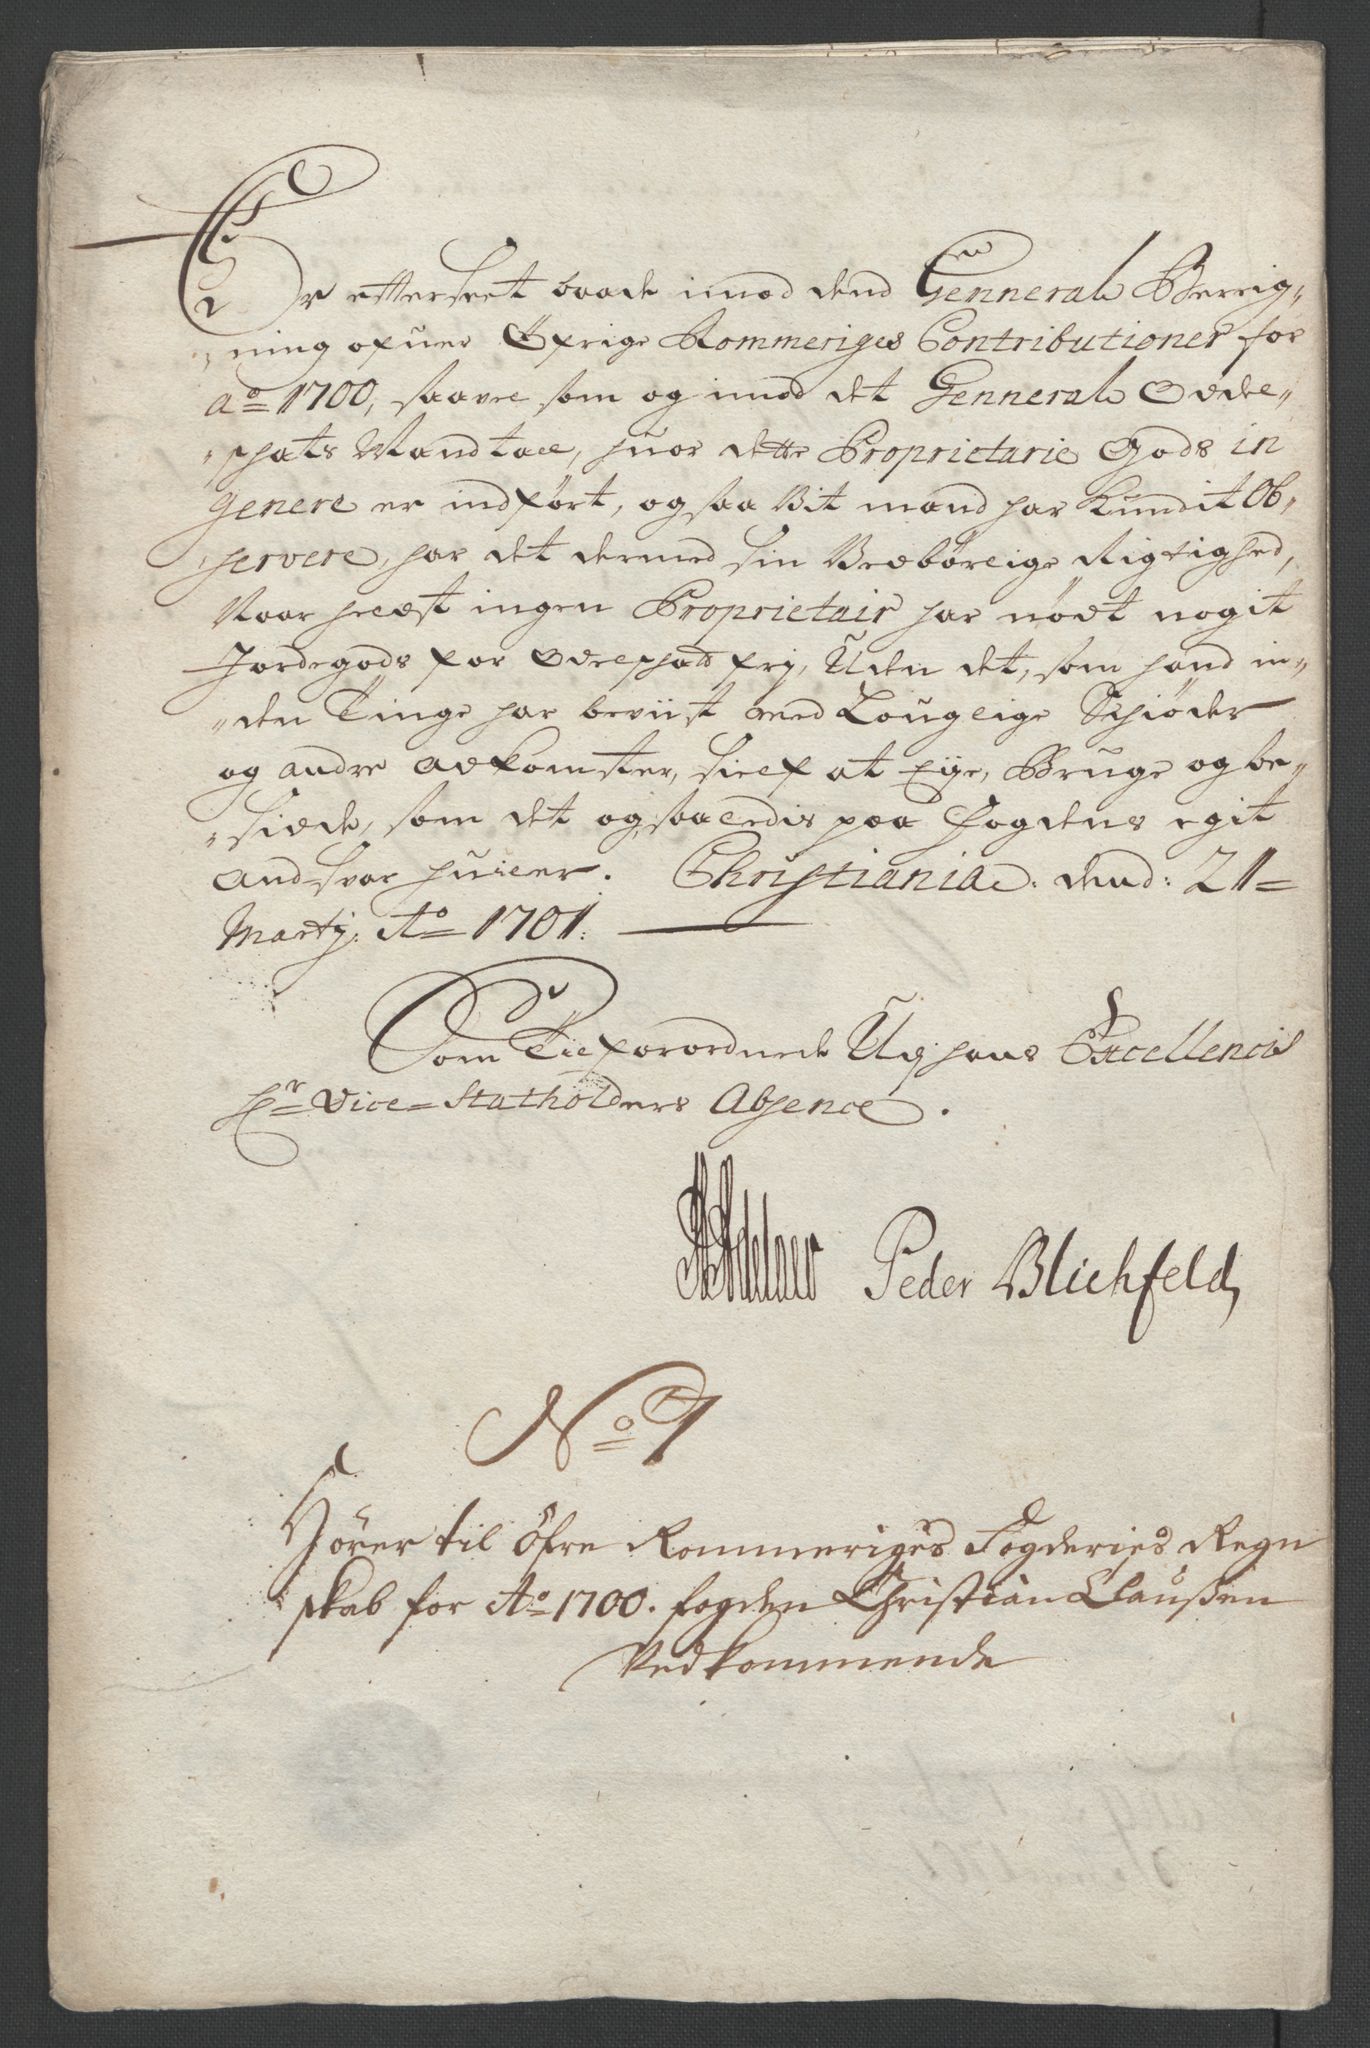 Er efterseet baade imod dend Genneral Bereig-
ning ofuer Öfrige Rommeriges Contributioner for
Ao 1700, saavel som og imod det Genneral Odels-
schats Mandtall, huor dette Proprietarie Gods in
genere er indført, og saa Vit mand har kundit Ob-
servere, har det dermed sin Vedbørlige Rigtighed,
Naar helst ingen Proprietair har nødt nogit
Jordegods for Odelschatt frj, Uden det, som hand in-
den Tinge har beviist med Louglige Schiøder
og andre Adkomster, sielf at Eije, Bruge og be-
sidde, som det og saaledis paa Fogdens egit
Andsvar huiler. Christiania dend: 21=
Martij: Ao 1701.
Som Tilforordnede Udj hans Excellences
Hr Vice=Statholders Absence.
Adelaer Peder Blichfeld,
No 7
Hörer til Öfre Rommeriges Fogderies Regn
skab for Ao 1700. fogden Christian Claußen
Vedkommende